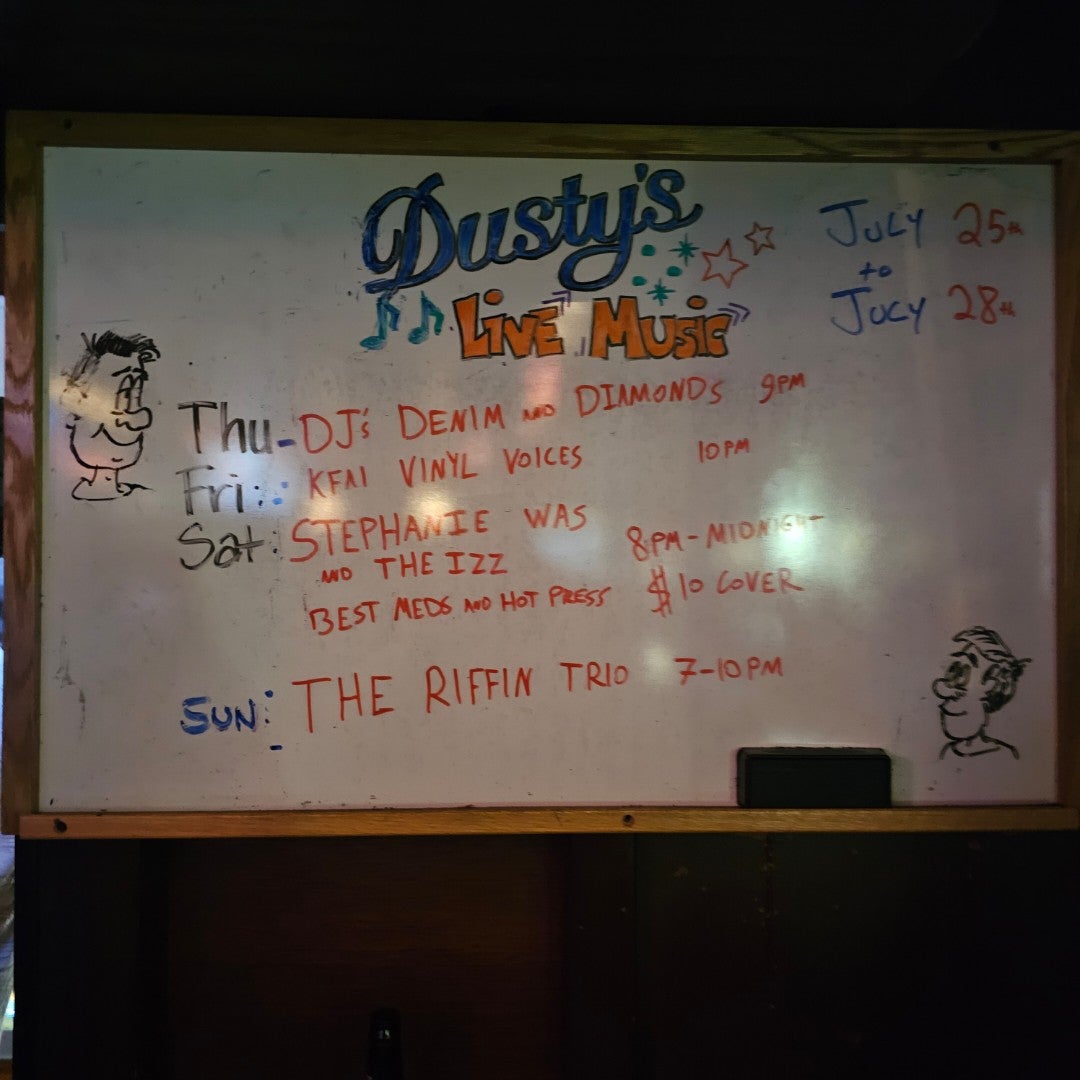 Dusty's
LIVE MUSIC
JULY 25th
to
JULY 28th
Thu - DJ's DENIM AND DIAMONDS 9PM
Fri: KFAI VINYL VOICES 10PM
Sat: STEPHANIE WAS
AND THE IZZ 8PM - MIDNIGHT
BEST MEDS AND HOT PRESS $10 COVER
SUN: THE RIFFIN TRIO 7-10PM